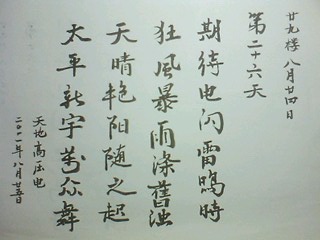 廿九楼 八月廿四日
第二十六天
期待电闪雷鸣時
狂風暴雨涤舊浊
天晴艳阳随之起
太平新宇万众舞
天地高压电
二〇一一年八月廿五日